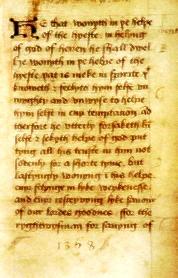 HE that wonyth in þe helpe
of the hyeste, in helyng
of god of heuen he shall dwel
He wonyth in þe helpe of the
hyeste þat is meke in spirite &
knoweth & felyth hym selfe vn
myghty and vnwyse to helpe
hym selfe in eny temptation ad
therfore he vtterly forsaketh his
selfe & seketh helpe of god put
tyng all his truste in him not
sodenly for a shorte tyme, but
lastyngly wonyng i his helpe
euer felynge in hys
and euer the sauour
of our lordes goodnes ffor the
ryghtwisman for sauyng of
1368